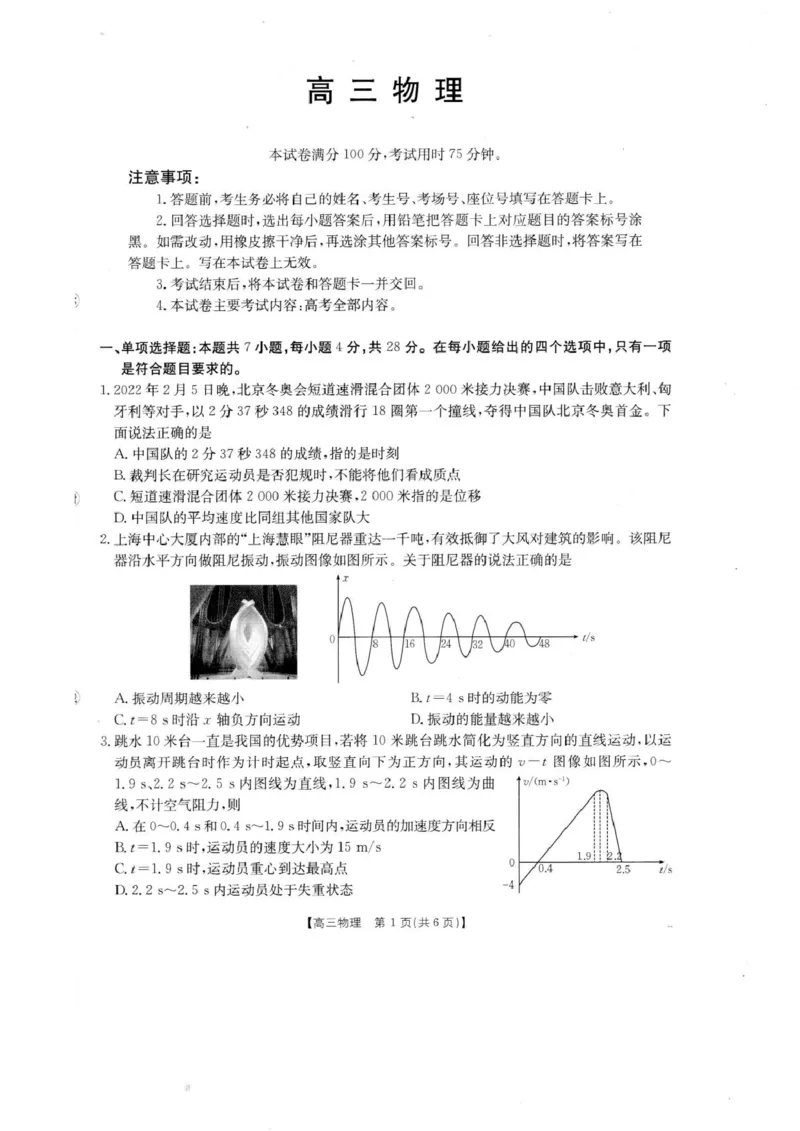 高 三 物 理
本试卷满分 100 分,考试用时 75 分钟。
注意事项:
1. 答题前,考生务必将自己的姓名、考生号、考场号、座位号填写在答题卡上。
2. 回答选择题时,选出每小题答案后,用铅笔把答题卡上对应题目的答案标号涂
黑。如需改动,用橡皮擦干净后,再选涂其他答案标号。回答非选择题时,将答案写在
答题卡上。写在本试卷上无效。
3. 考试结束后,将本试卷和答题卡一并交回。
4. 本试卷主要考试内容:高考全部内容。
一、单项选择题:本题共 7 小题,每小题 4 分,共 28 分。在每小题给出的四个选项中,只有一项
是符合题目要求的。
1. 2022 年 2 月 5 日晚,北京冬奥会短道速滑混合团体 2 000 米接力决赛,中国队击败意大利、匈
牙利等对手,以 2 分 37 秒 348 的成绩滑行 18 圈第一个撞线,夺得中国队北京冬奥首金。下
面说法正确的是
A. 中国队的 2 分 37 秒 348 的成绩,指的是时刻
B. 裁判长在研究运动员是否犯规时,不能将他们看成质点
C. 短道速滑混合团体 2 000 米接力决赛,2 000 米指的是位移
D. 中国队的平均速度比同组其他国家队大
2. 上海中心大厦内部的“上海慧眼”阻尼器重达一千吨,有效抵御了大风对建筑的影响。该阻尼
器沿水平方向做阻尼振动,振动图像如图所示。关于阻尼器的说法正确的是
x
0 8 16 24 32 40 48 t/s
A. 振动周期越来越小 B. t=4 s 时的动能为零
C. t=8 s 时沿 x 轴负方向运动 D. 振动的能量越来越小
3. 跳水 10 米台一直是我国的优势项目,若将 10 米跳台跳水简化为竖直方向的直线运动,以运
动员离开跳台时作为计时起点,取竖直向下为正方向,其运动的 v-t 图像如图所示,0～
1.9 s、2.2 s～2.5 s 内图线为直线,1.9 s～2.2 s 内图线为曲
线,不计空气阻力,则
A. 在 0～0.4 s 和 0.4 s～1.9 s 时间内,运动员的加速度方向相反
B. t=1.9 s 时,运动员的速度大小为 15 m/s
C. t=1.9 s 时,运动员重心到达最高点
D. 2.2 s～2.5 s 内运动员处于失重状态
v/(m·s⁻¹)
1.9 2.2
0 0.4 2.5 t/s
-4
【高三物理 第 1 页(共 6 页)】